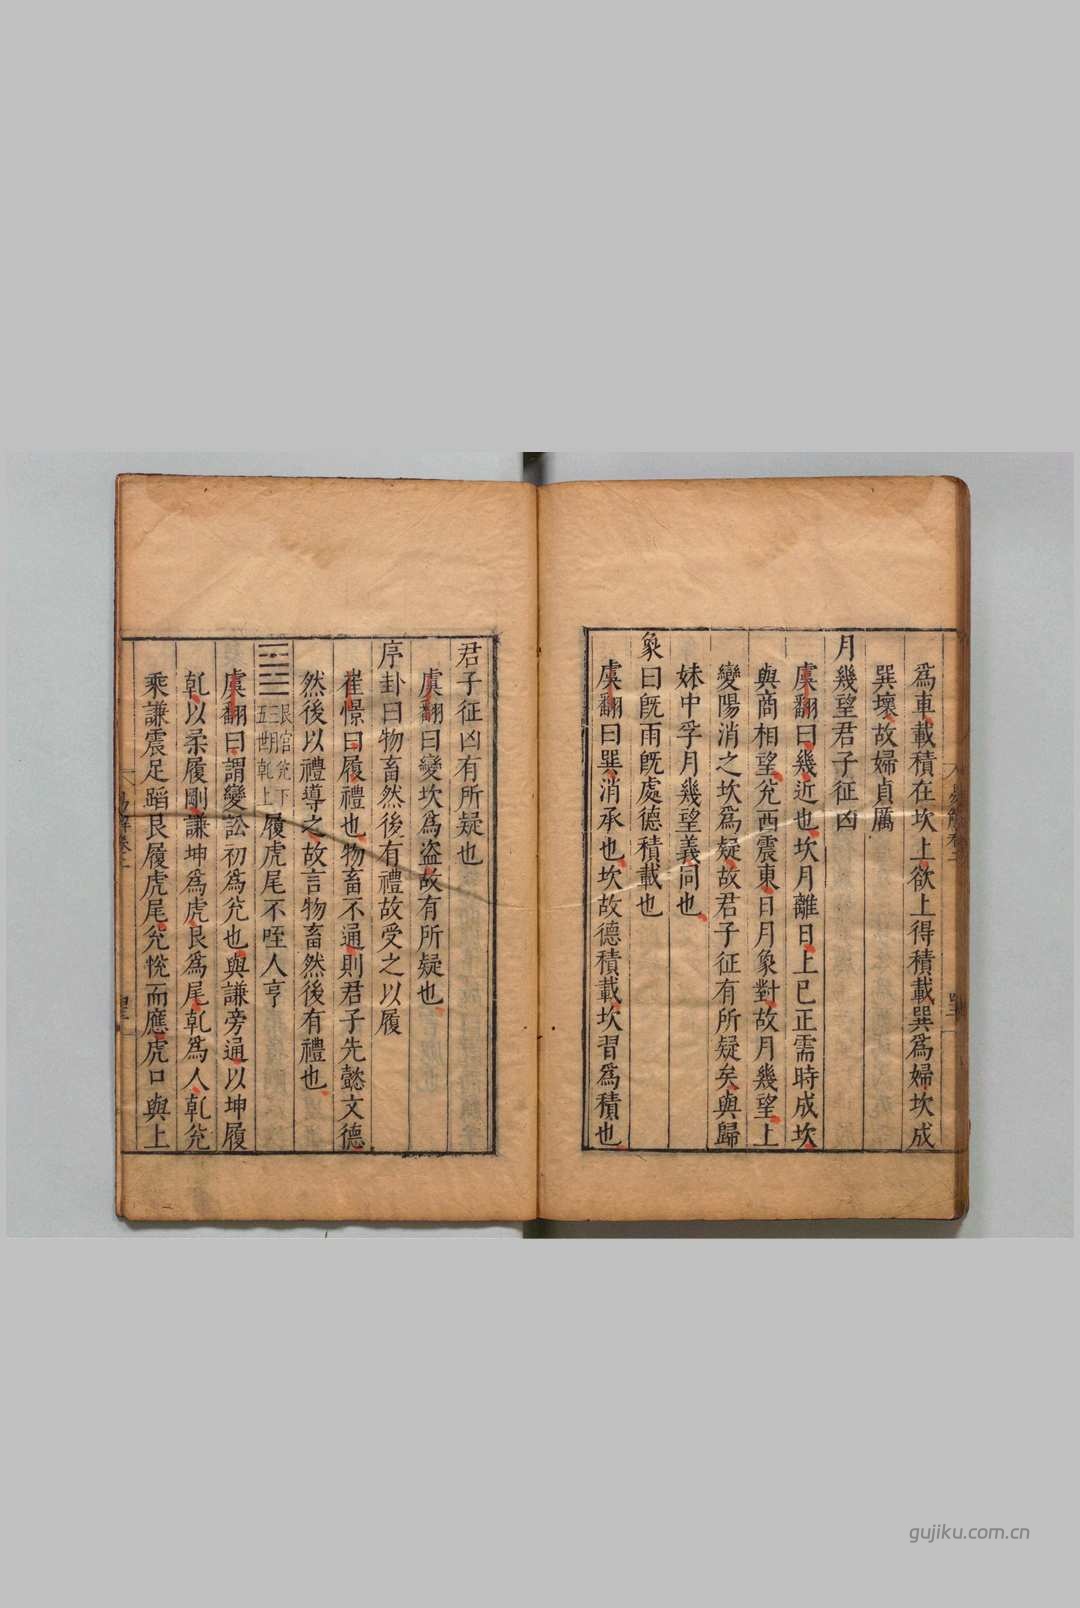 爲車載積在坎上欲上得積載巽爲婦坎成
巽壞故婦貞厲
月幾望君子征凶
虞翻曰幾近也坎月離日上巳正需時成坎
與商相望兊西震東日月象對故月幾望上
變陽消之坎爲疑故君子征有所疑矣與歸
妹中孚月幾望義同也
象曰既雨既處德積載也
虞翻曰巽消承也坎故德積載坎習爲積也
君子征凶有所疑也
虞翻曰變坎爲盗故有所疑也
序卦曰物畜然後有禮故受之以履
崔憬曰履禮也物畜不通則君子先懿文德
然後以禮導之故言物畜然後有禮也
宮兊下
五世乾上
履虎尾不咥人亨
虞翻曰謂變訟初爲兊也與謙旁通以坤履
乾以柔履剛謙坤爲虎艮爲尾乾爲人乾兊
乘謙震足蹈艮履虎尾兊恱而應虎口與上
gujiku.com.cn